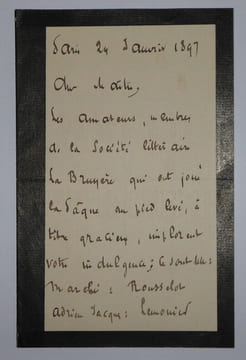 Paris 24 Janvier 1897
Cher Maître,
Les amateurs, membres
de la Société littéraire
La Bruyère qui ont joué
la Pâque au pied levé, à
titre gracieux, implorent
votre indulgence; ce sont M.M.:
Marché: Rousselot
Adrien Jacque: Lemonier